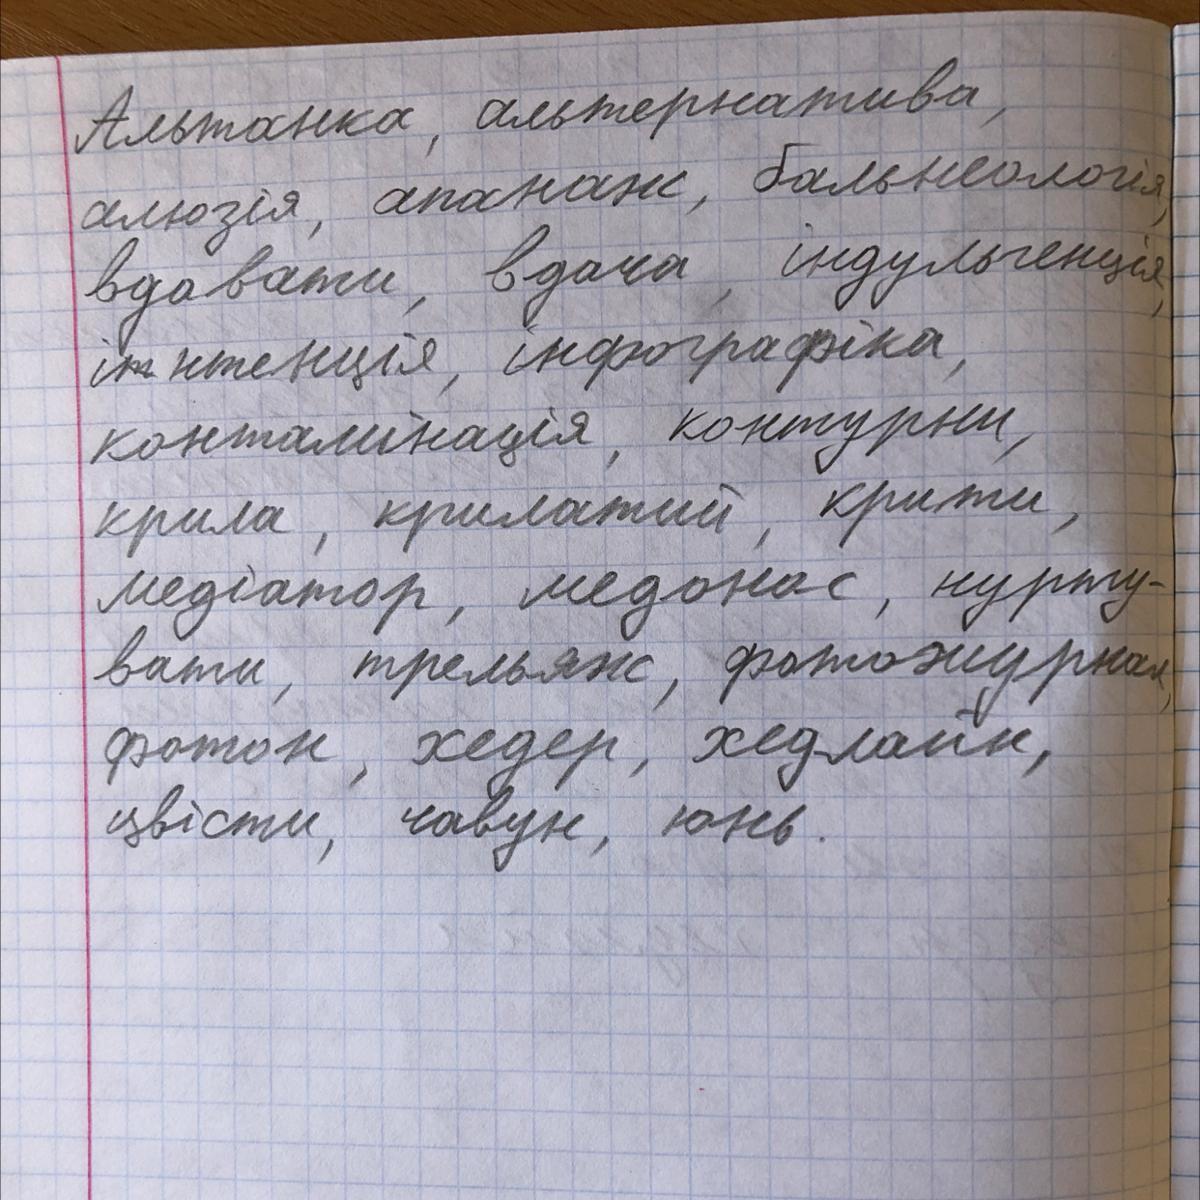 Альтанка, альтернатива,
алюзія, апанаж, бальнеологія,
вдавати, вдача, індульгенція,
інтенція, інфографіка,
контамінація, контурни,
крила, крилатий, крити,
медіатор, медонос, нурту-
вати, трельяж, фотожурнал,
фотон, хедер, хедлайн,
цвісти, чавун, юнь.